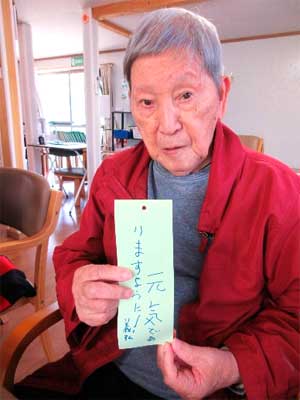 元気であ
りますように!